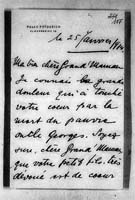 le 25 Janvier 1904
Ma très chère Grand Maman
Je connais la grande
douleur qui a touché
votre cœur par la
mort du pauvre
oncle Georges. Soyez
sûre, chère Grand Maman,
que votre petit fils très
dévoué est de cœur